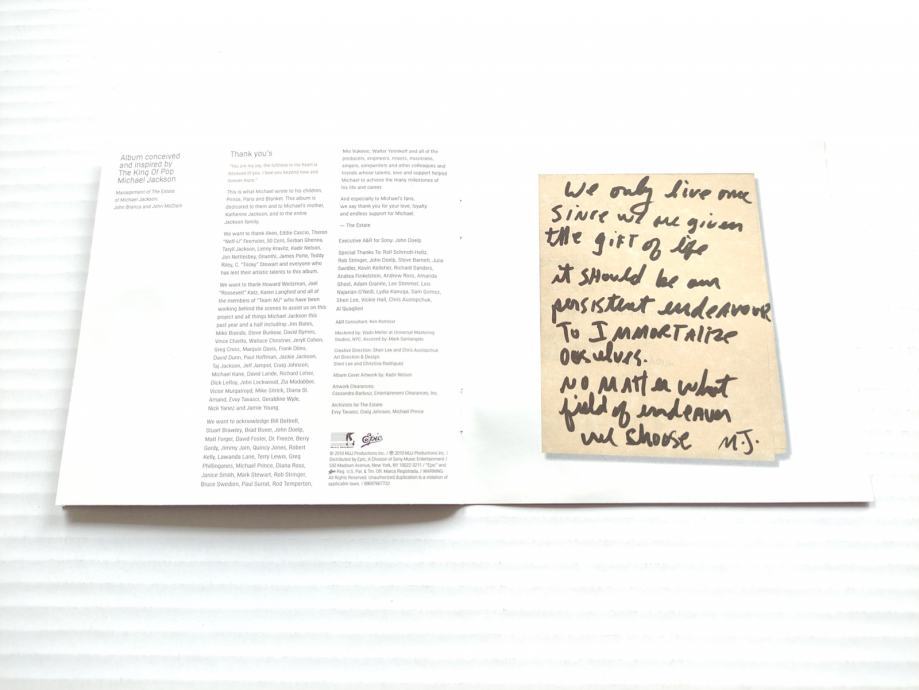 Album conceived
and inspired by
The King Of Pop
Michael Jackson
Management of The Estate
of Michael Jackson:
John Branca and John McClain
Thank you's
"You are my joy, the fullness in my heart is
because of you. I love you beyond now and
forever more."
This is what Michael wrote to his children,
Prince, Paris and Blanket. This album is
dedicated to them and to Michael's mother,
Katherine Jackson, and to the entire
Jackson family.
We want to thank Akon, Eddie Cascio, Theron
"Neff-U" Feemster, 50 Cent, Serban Ghenea,
Taryll Jackson, Lenny Kravitz, Kadir Nelson,
Jon Nettlesbey, Orianthi, James Porte, Teddy
Riley, C. "Tricky" Stewart and everyone who
has lent their artistic talents to this album.
We want to thank Howard Weitzman, Joel
"Roosevelt" Katz, Karen Langford and all of
the members of "Team MJ" who have been
working behind the scenes to assist us on this
project and all things Michael Jackson this
past year and a half including: Jim Bates,
Miko Brando, Steve Burkow, David Byrnes,
Vince Chavilo, Wallace Chrstner, Jeryll Cohen,
Greg Cross, Marquis Davis, Frank Dileo,
David Dunn, Paul Hoffman, Jackie Jackson,
Taj Jackson, Jeff Jampol, Craig Johnson,
Michael Kane, David Lande, Richard Leher,
Dick Leftoy, John Lockwood, Zia Modabber,
Victor Murgatroyd, Mike Sitrick, Diana St.
Amand, Evvy Tavasci, Geraldine Wyle,
Nick Yanez and Jamie Young.
We want to acknowledge Bill Bottrell,
Stuart Brawley, Brad Buxer, John Doelp,
Matt Forger, David Foster, Dr. Freeze, Berry
Gordy, Jimmy Jam, Quincy Jones, Robert
Kelly, Lawanda Lane, Terry Lewis, Greg
Phillinganes, Michael Prince, Diana Ross,
Janice Smith, Mark Stewart, Rob Stringer,
Bruce Swedien, Paul Surrat, Rod Temperton,
Mio Vukovic, Walter Yetnikoff and all of the
producers, engineers, mixers, musicians,
singers, songwriters and other colleagues and
friends whose talents, love and support helped
Michael to achieve the many milestones of
his life and career.
And especially to Michael's fans,
we say thank you for your love, loyalty
and endless support for Michael.
— The Estate
Executive A&R for Sony: John Doelp
Special Thanks To: Rolf Schmidt-Holtz,
Rob Stringer, John Doelp, Steve Barnett, Julie
Swidler, Kevin Kelleher, Richard Sanders,
Andrea Finkelstein, Andrew Ross, Amanda
Ghost, Adam Granite, Lee Stimmel, Lois
Najarian O'Neill, Lydia Kanuga, Sam Gomez,
Sheri Lee, Vickie Hall, Chris Austopchuk,
Al Quaglieri
A&R Consultant: Ken Komisar
Mastered by: Vlado Meller at Universal Mastering
Studios, NYC. Assisted by: Mark Santangelo
Creative Direction: Sheri Lee and Chris Austopchuk
Art Direction & Design:
Sheri Lee and Christina Rodriguez
Album Cover Artwork by: Kadir Nelson
Artwork Clearances:
Cassandra Barbour, Entertainment Clearances, Inc.
Archivists for The Estate:
Evvy Tavasci, Craig Johnson, Michael Prince
Epic
© 2010 MJJ Productions Inc. / ℗ 2010 MJJ Productions Inc. /
Distributed by Epic, A Division of Sony Music Entertainment /
550 Madison Avenue, New York, NY 10022-3211 / "Epic" and
Reg. U.S. Pat. & Tm. Off. Marca Registrada. / WARNING:
All Rights Reserved. Unauthorized duplication is a violation of
applicable laws. / 88697867732
We only live once
Since we are given
the gift of life
it should be our
persistent endeavour
To Immortalize
ourselves.
No matter what
field of endeavor
we choose M.J.